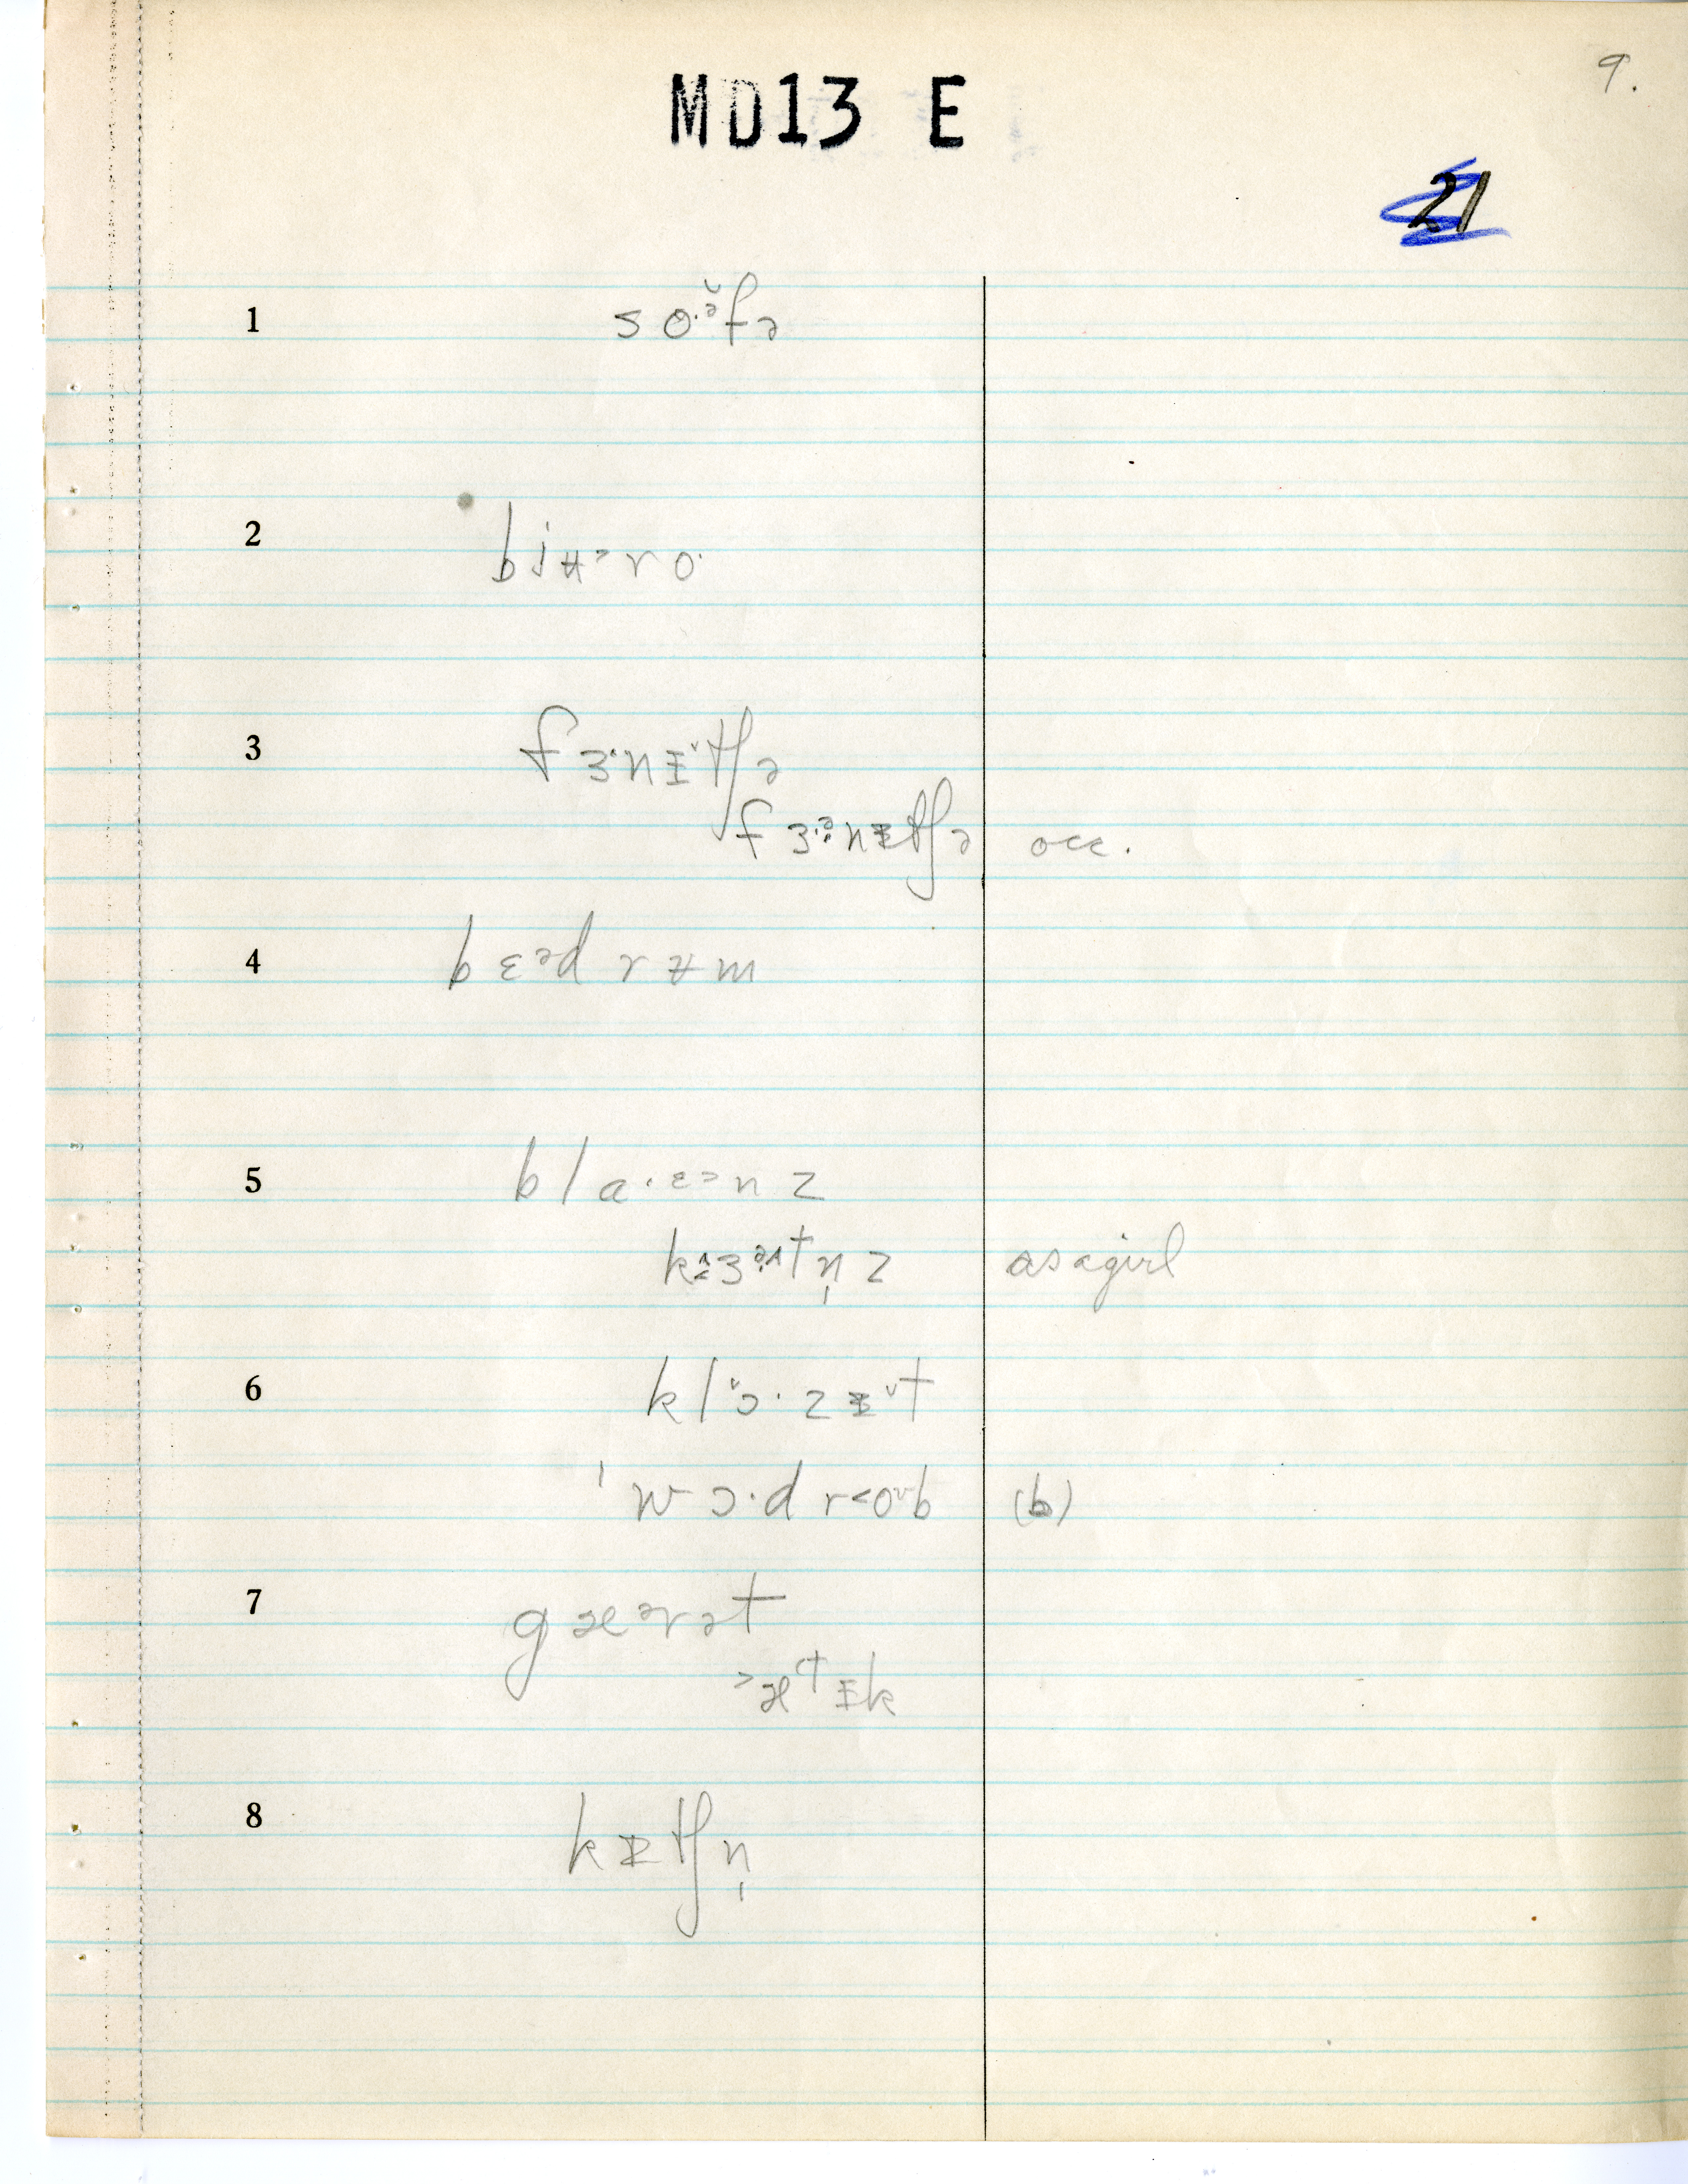 9.
MD13 E
21
1 so·ə̆fə
2 biʉ˃ro·
3 fɜ·nɪ̵˅tʃə
fɜ·ə̯nɪ̵tʃə occ.
4 bɛᵊd rʉm
5 bla·ᵋ˃nz
kɜᵊ^tn̩z as a girl
6 klɔ˅·zɪ̵˅t
ˈwɔ·d r˂oʊb (b)
7 gæᵊrət
˃ætɪ̵k
8 kɪ̵tʃn̩